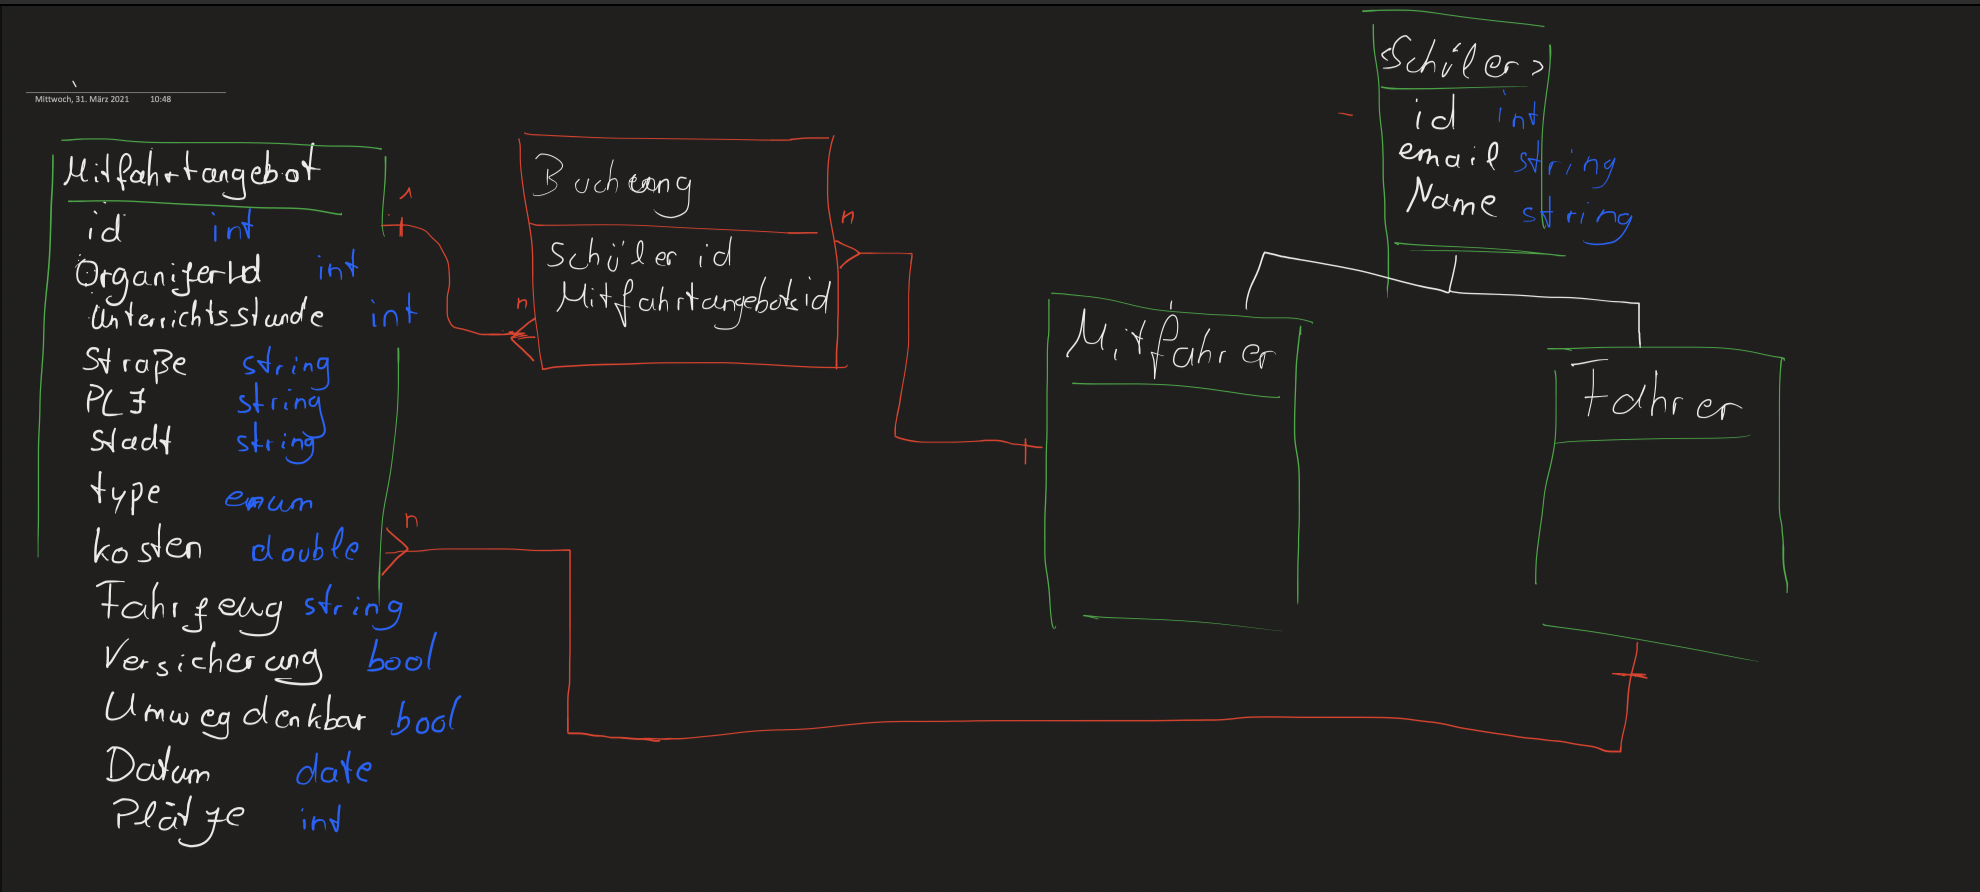 Mittwoch, 31. März 2021 10:48
Mitfahrtangebot
id int
OrganizerId int
Unterrichtsstunde int
Straße string
PLZ string
Stadt string
type enum
kosten double
Fahrzeug string
Versicherung bool
Umweg denkbar bool
Datum date
Plätze int
1
n
Buchung
Schüler id
Mitfahrtangebotsid
n
n
<Schüler>
id int
email string
Name string
Mitfahrer
Fahrer